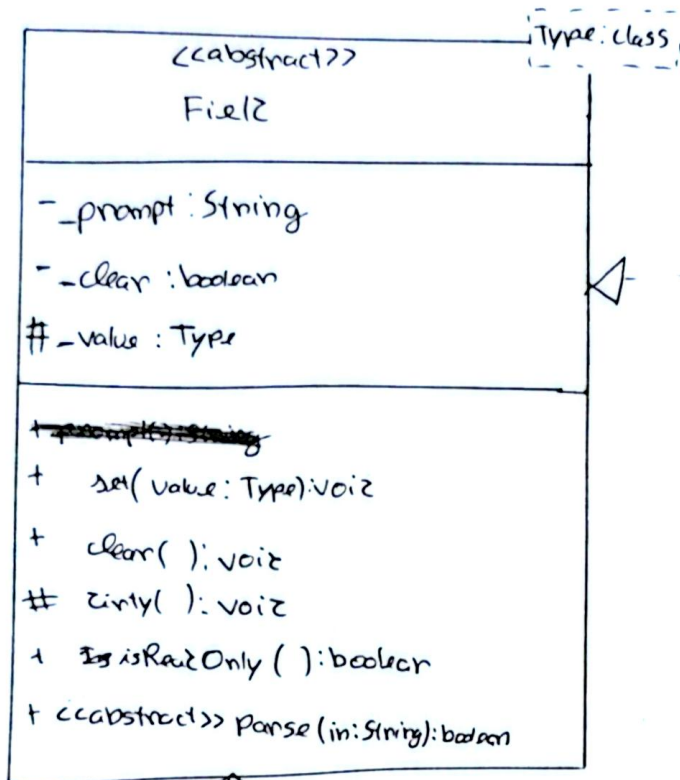 Type: class
<<abstract>>
Field
- _prompt : String
- _clear : boolean
# _value : Type
+ set( value: Type): void
+ clear( ): void
# dirty( ): void
+ isReadOnly ( ): boolean
+ <<abstract>> Parse (in: String): boolean